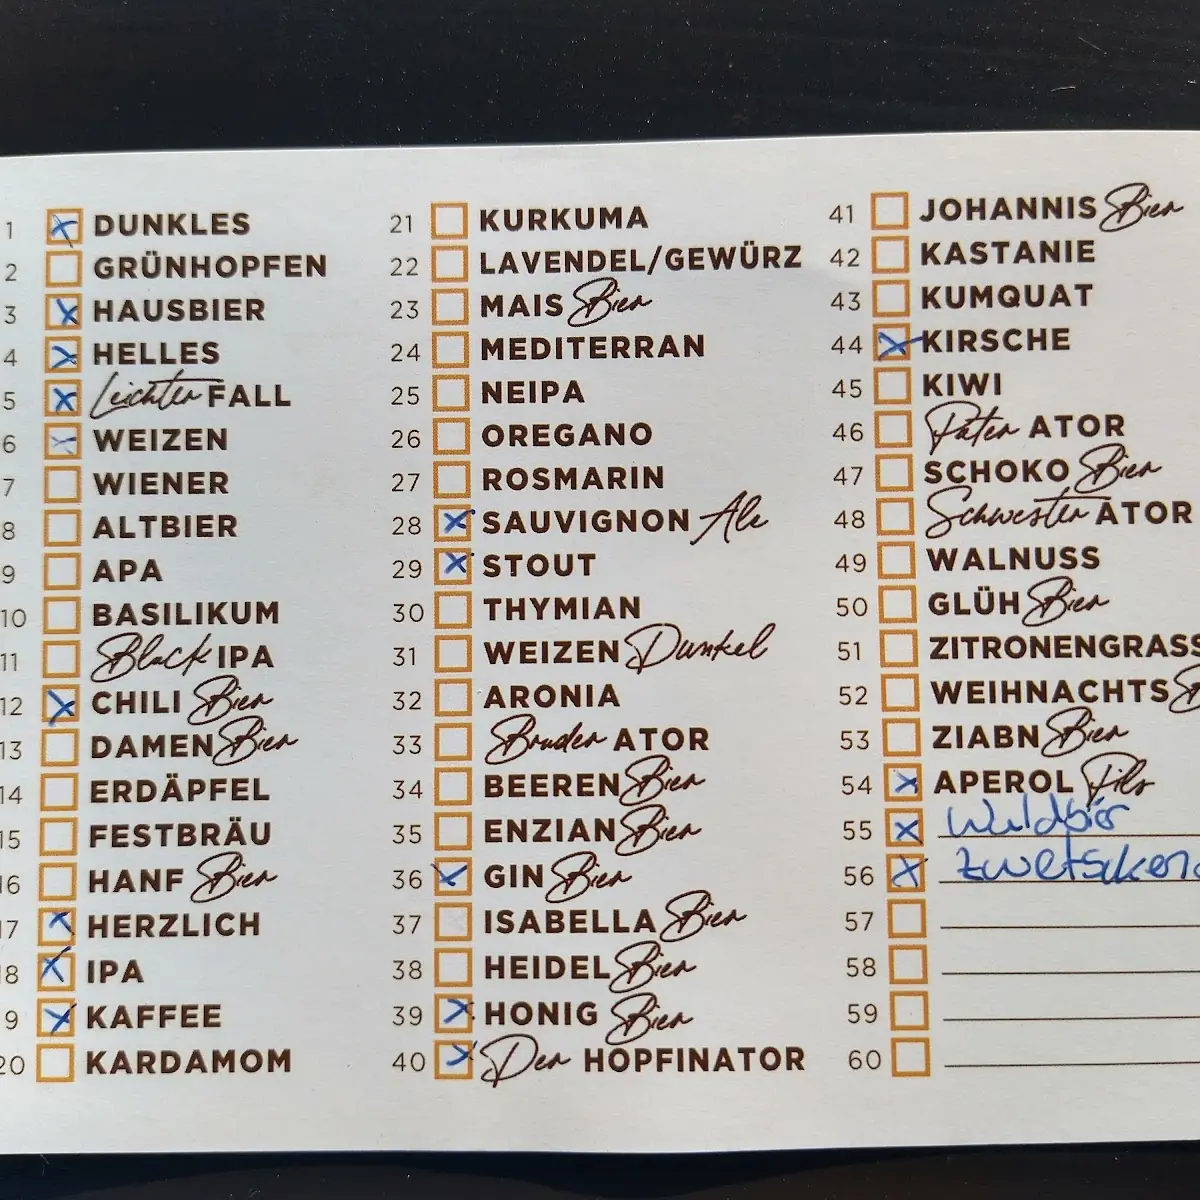 1 DUNKLES
2 GRÜNHOPFEN
3 HAUSBIER
4 HELLES
5 Leichter FALL
6 WEIZEN
7 WIENER
8 ALTBIER
9 APA
10 BASILIKUM
11 Black IPA
12 CHILI Bier
13 DAMEN Bier
14 ERDÄPFEL
15 FESTBRÄU
16 HANF Bier
17 HERZLICH
18 IPA
19 KAFFEE
20 KARDAMOM
21 KURKUMA
22 LAVENDEL/GEWÜRZ
23 MAIS Bier
24 MEDITERRAN
25 NEIPA
26 OREGANO
27 ROSMARIN
28 SAUVIGNON Ale
29 STOUT
30 THYMIAN
31 WEIZEN Dunkel
32 ARONIA
33 Bruder ATOR
34 BEEREN Bier
35 ENZIAN Bier
36 GIN Bier
37 ISABELLA Bier
38 HEIDEL Bier
39 HONIG Bier
40 Der HOPFINATOR
41 JOHANNIS Bier
42 KASTANIE
43 KUMQUAT
44 KIRSCHE
45 KIWI
46 Pater ATOR
47 SCHOKO Bier
48 Schwester ATOR
49 WALNUSS
50 GLÜH Bier
51 ZITRONENGRASS
52 WEIHNACHTS
53 ZIABN Bier
54 APEROL Pils
55 Waldbier
56
57
58
59
60